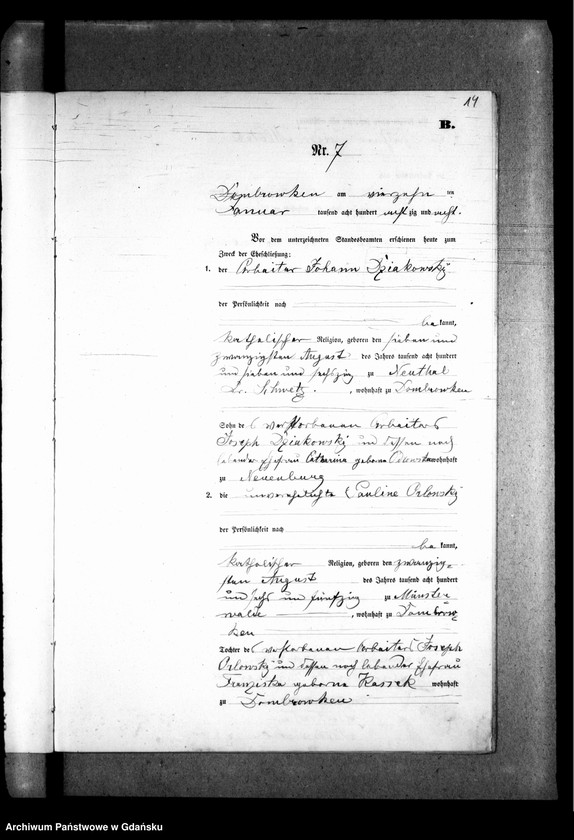 14
B.
Nr. 7
Dombrowken am vierzehn ten
Januar tausend acht hundert acht zig und acht.
Vor dem unterzeichneten Standesbeamten erschienen heute zum
Zweck der Eheschließung:
1. der Arbeiter Johann Dziakowski
der Persönlichkeit nach
be kannt,
katholischer Religion, geboren den sieben und
zwanzigsten August des Jahres tausend acht hundert
und sieben und sechszig zu Neuthal
Kr. Schwetz, wohnhaft zu Dombrowken
Sohn des verstorbenen Arbeiters
Joseph Dziakowski und dessen noch
lebender Ehefrau Catharina geborne wohnhaft
zu Neuenburg
2. die unverehelichte Pauline Orlowski
der Persönlichkeit nach
be kannt,
katholischer Religion, geboren den zwanzig-
sten August des Jahres tausend acht hundert
und sechs und fünfzig zu Münster
walde, wohnhaft zu Dombrow-
ken
Tochter des verstorbenen Arbeiters Joseph
Orlowski und dessen noch lebender Ehefrau
Franziska geborne Kassek wohnhaft
zu Dombrowken
Archiwum Państwowe w Gdańsku